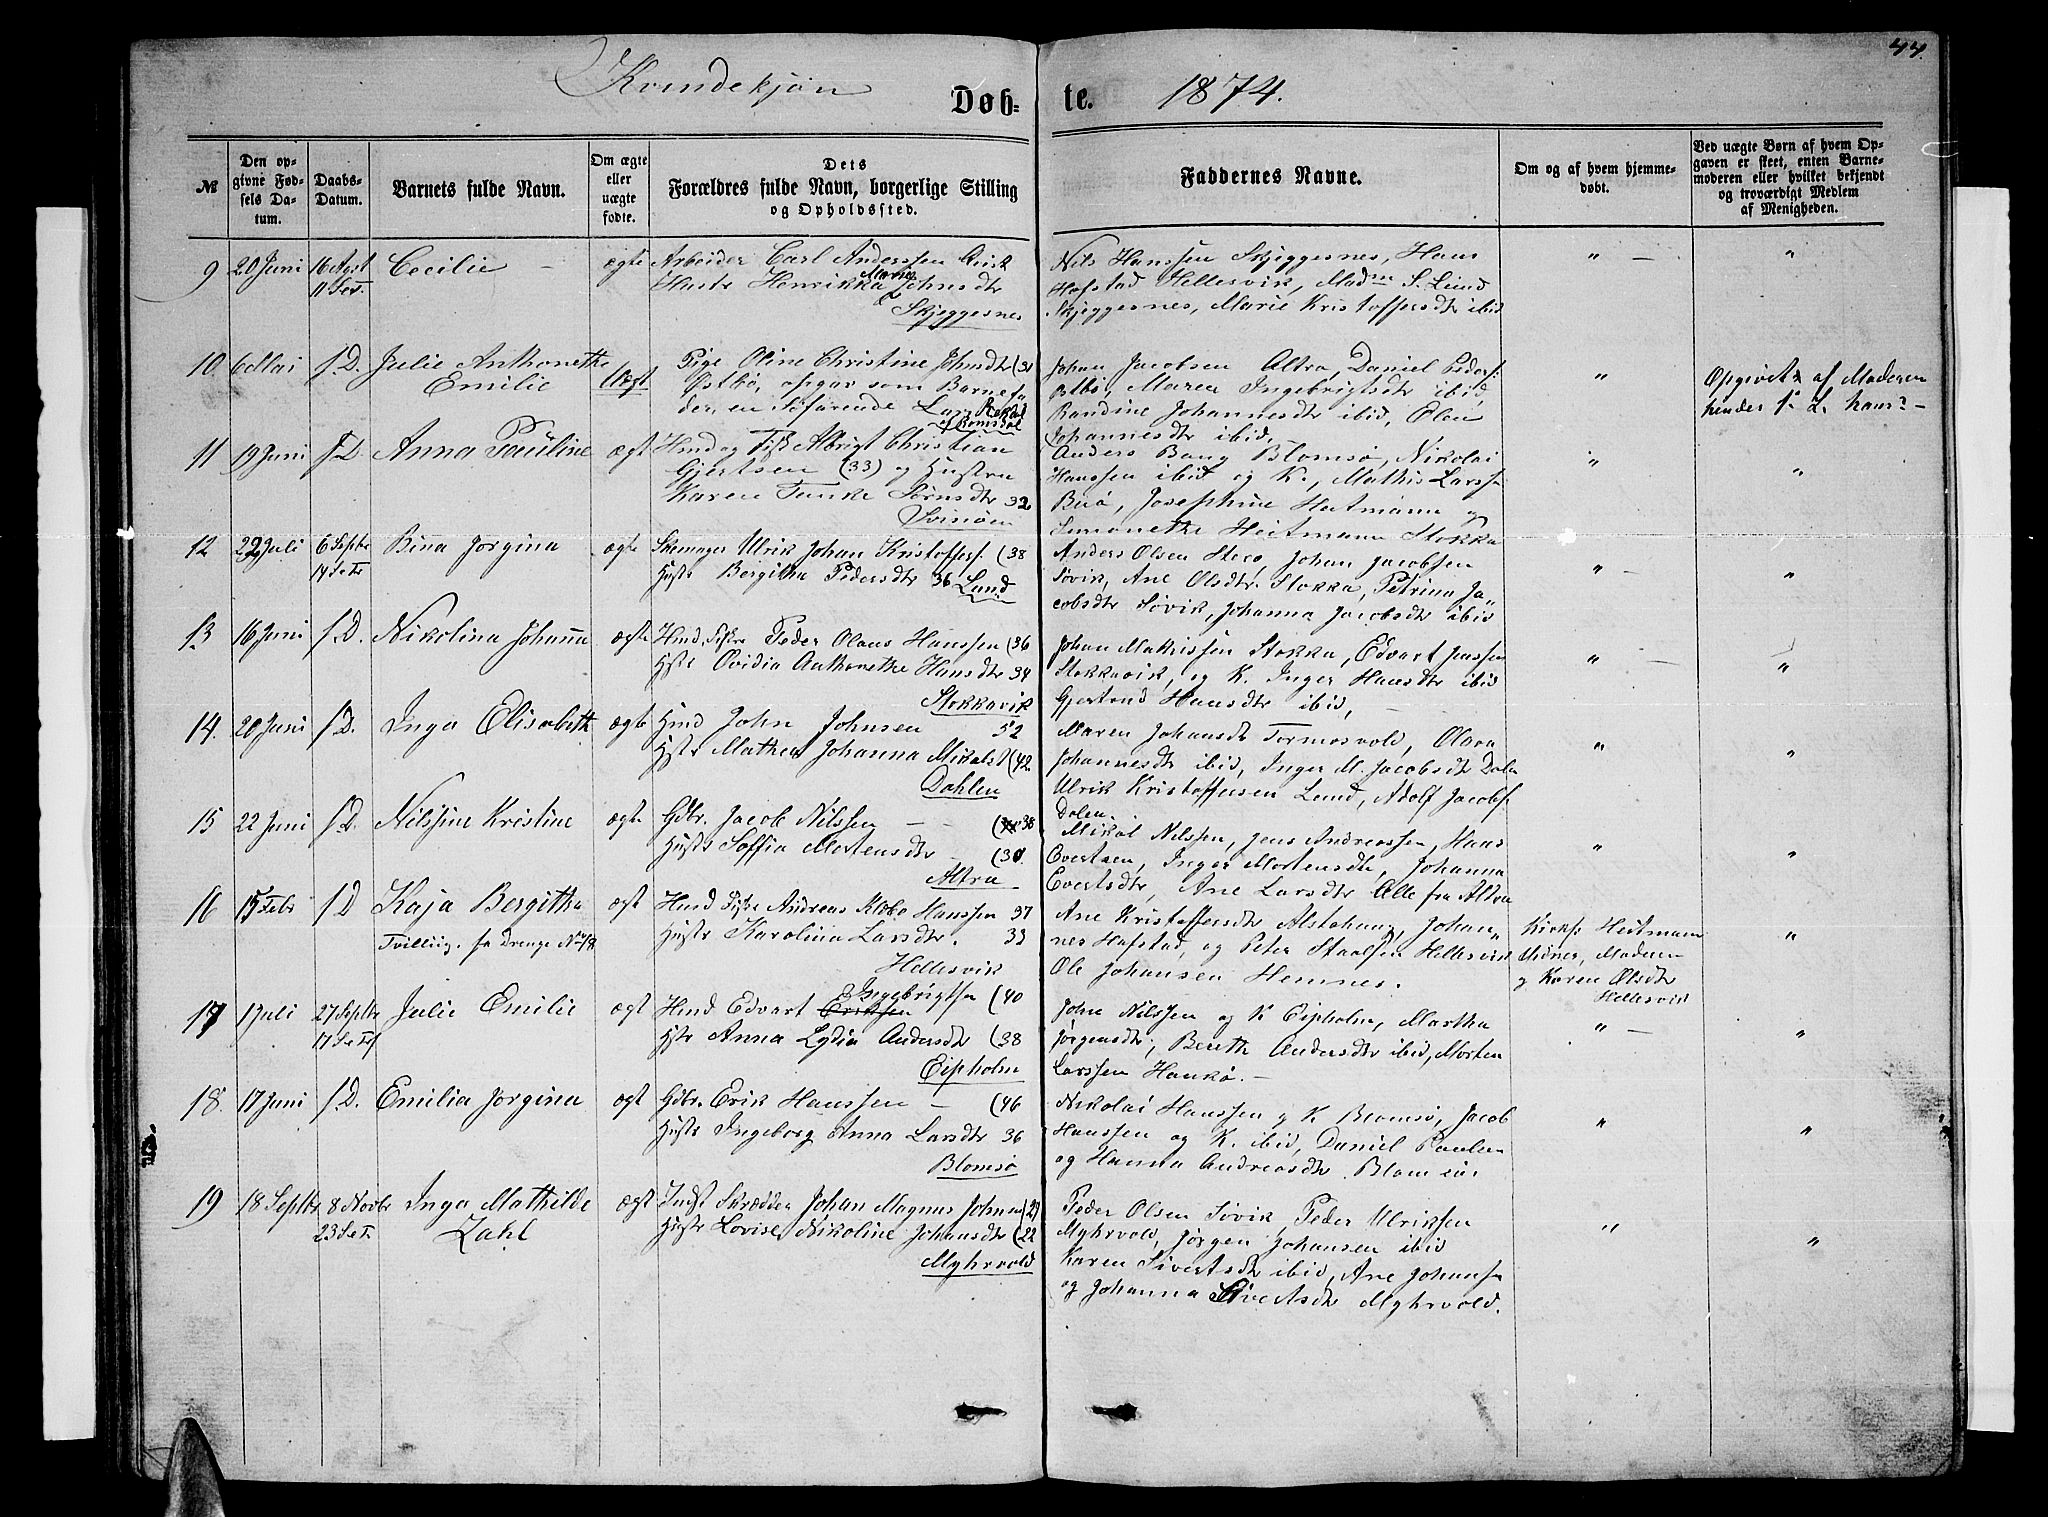 44.
Kvindekjøn
Døb-
te.
1874.
№
Den op-
givne Fød-
sels Da-
tum.
Daabs-
Datum.
Barnets fulde Navn.
Om ægte
eller
uægte
fødte.
Dets
Forældres fulde Navn, borgerlige Stilling
og Opholdssted.
Faddernes Navne.
Om og af hvem hjemme-
døbt.
Ved uægte Børn af hvem Op-
gaven er skeet, enten Barne-
moderen eller hvilket bekjendt
og troværdigt Medlem
af Menigheden.
9 20 Juni 16 Agst Cecilie - ægte Arbeider Carl Anderssen
11 S.e.T. Hustr Henrikka Marie Johnsdtr
Skjeggesnes
Nils Hanssen Skjeggesnes, Hans
Hofstad Hellesvik, Madm S. Lund
Skjeggesnes, Marie Kristoffersdtr ibid
10 6 Mai s. D. Julie Anthonette
Emilie
Uægt
Pige Oline Christine Johnsdtr (31
Østbø, opgav som Barnefa
der, en Søfarende Lars
af Romsdal
Johan Jacobsen Altra, Daniel Peders.
Østbø, Maren Ingebrigtsdtr ibid,
Randine Johannesdtr ibid, Olea
Johannesdtr ibid.
Opgivet af Moderen
11 19 Juni s. D. Anna Pauline ægt Hmd og Fisk Albrigt Christian
Gjertsen (33) og Hustru
Karen Sørnsdtr 32
Svinøen
Anders Bang Blomsø, Nikolai
Hanssen ibid og K., Mathis Larss.
Buø, Josephine Heitmann og
Simonette Heitmann Stokka
12 22 Juli 6 Septbr Bina Jorgina ægte Skomager Ulrik Johan Kristoffers. (38
14 S.e.Tr Hustr Bergitha Pedersdtr 36 Lund
Anders Olsen Steco, Johan Jacobsen
Søvik, Ane Olsdtr Stokka, Petrina Ja-
cobsdtr Søvik, Johanna Jacobsdtr ibid
13 16 Juni s. D. Nikolina Johanna ægte Hmd. Fiskr Peder Olaus Hanssen (36
Hstr Ovidia Anthonette Hansdtr 34
Stokkavik
Johan Mathissen Stokka, Edvart Jenssen
Stokkavik, og K. Inger Hansdtr ibid
Gjertrud Hansdtr ibid, -
14. 20 Juni s. D. Inga Elisabeth ægte Hmd John Johnsen 52
Hstr Mathea Johanna Mikalsd (42
Dahlen
Maren Johansdtr Formosvold, Olava
Johannesdtr ibid, Inger M. Jacobsdtr Dalen
Ulrik Kristoffersen Lund, Adolf Jacobs.
Dalen.
15 22 Juni s. D. Nilsine Kristine ægte Gdbr. Jacob Nilssen - - 38
Hustr Soffia Mortensdtr - (30.
Altra
Mikal Nilssen, Jens Andreassen, Hans
Evertsen, Inger Mortensdtr, Johanna
Evertsdtr, Ane Larsdtr Alle fra Altra
16 15 Febr s. D Kaja Bergitha ægt Hmd Fiskr Andreas Klæbo Hanssen 37
Tvilling. se Drenge No 18. Hustr Karolina Larsdtr. 33
Hellesvik
Ane Kristoffersdtr Alstahaug, Johan-
nes Hofstad, og Peter Staalsen Hellesvik
Ole Johansen Hemnes.
Kirks. Heitmann
Midnes, Moderen
og Karen Olsdtr
Hellesvik
17 1 Juli 27 Septbr Julie Emilie ægt Hmd Edvart Eriksen Ingebrigtsn (40
17 S.e.Tr Hstr Anna Lydia Andersdtr (38
Eipholm
John Nilssen og K Eipholm, Martha
Jørgensdtr, Bereth Andersdtr ibid, Morten
Larssen Haukø. -
18. 17 Juni s. D. Emilia Jorgina ægt Gdbr. Erik Hanssen - (46
Hustr Ingeborg Anna Larsdtr 36
Blomsø
Nikolai Hanssen og K. Blomsø, Jacob
Hanssen og K. ibid, Daniel Paulsen
og Hanna Andreasdtr Blomsø.
19 18 Septbr 8 Novbr Inga Mathilde ægt Indst Skrædder Johan Magnus Johnsen (29
23 S.e.T. Zahl Hustr Lovise Nikoline Johansdtr (22
Myhrvold
Peder Olsen Søvik, Peder Ulriksen
Myhrvold, Jørgen Johansen ibid
Karen Sivertsdtr ibid, Ane Johans.
og Johanna Sivertsdtr Myhrvold.